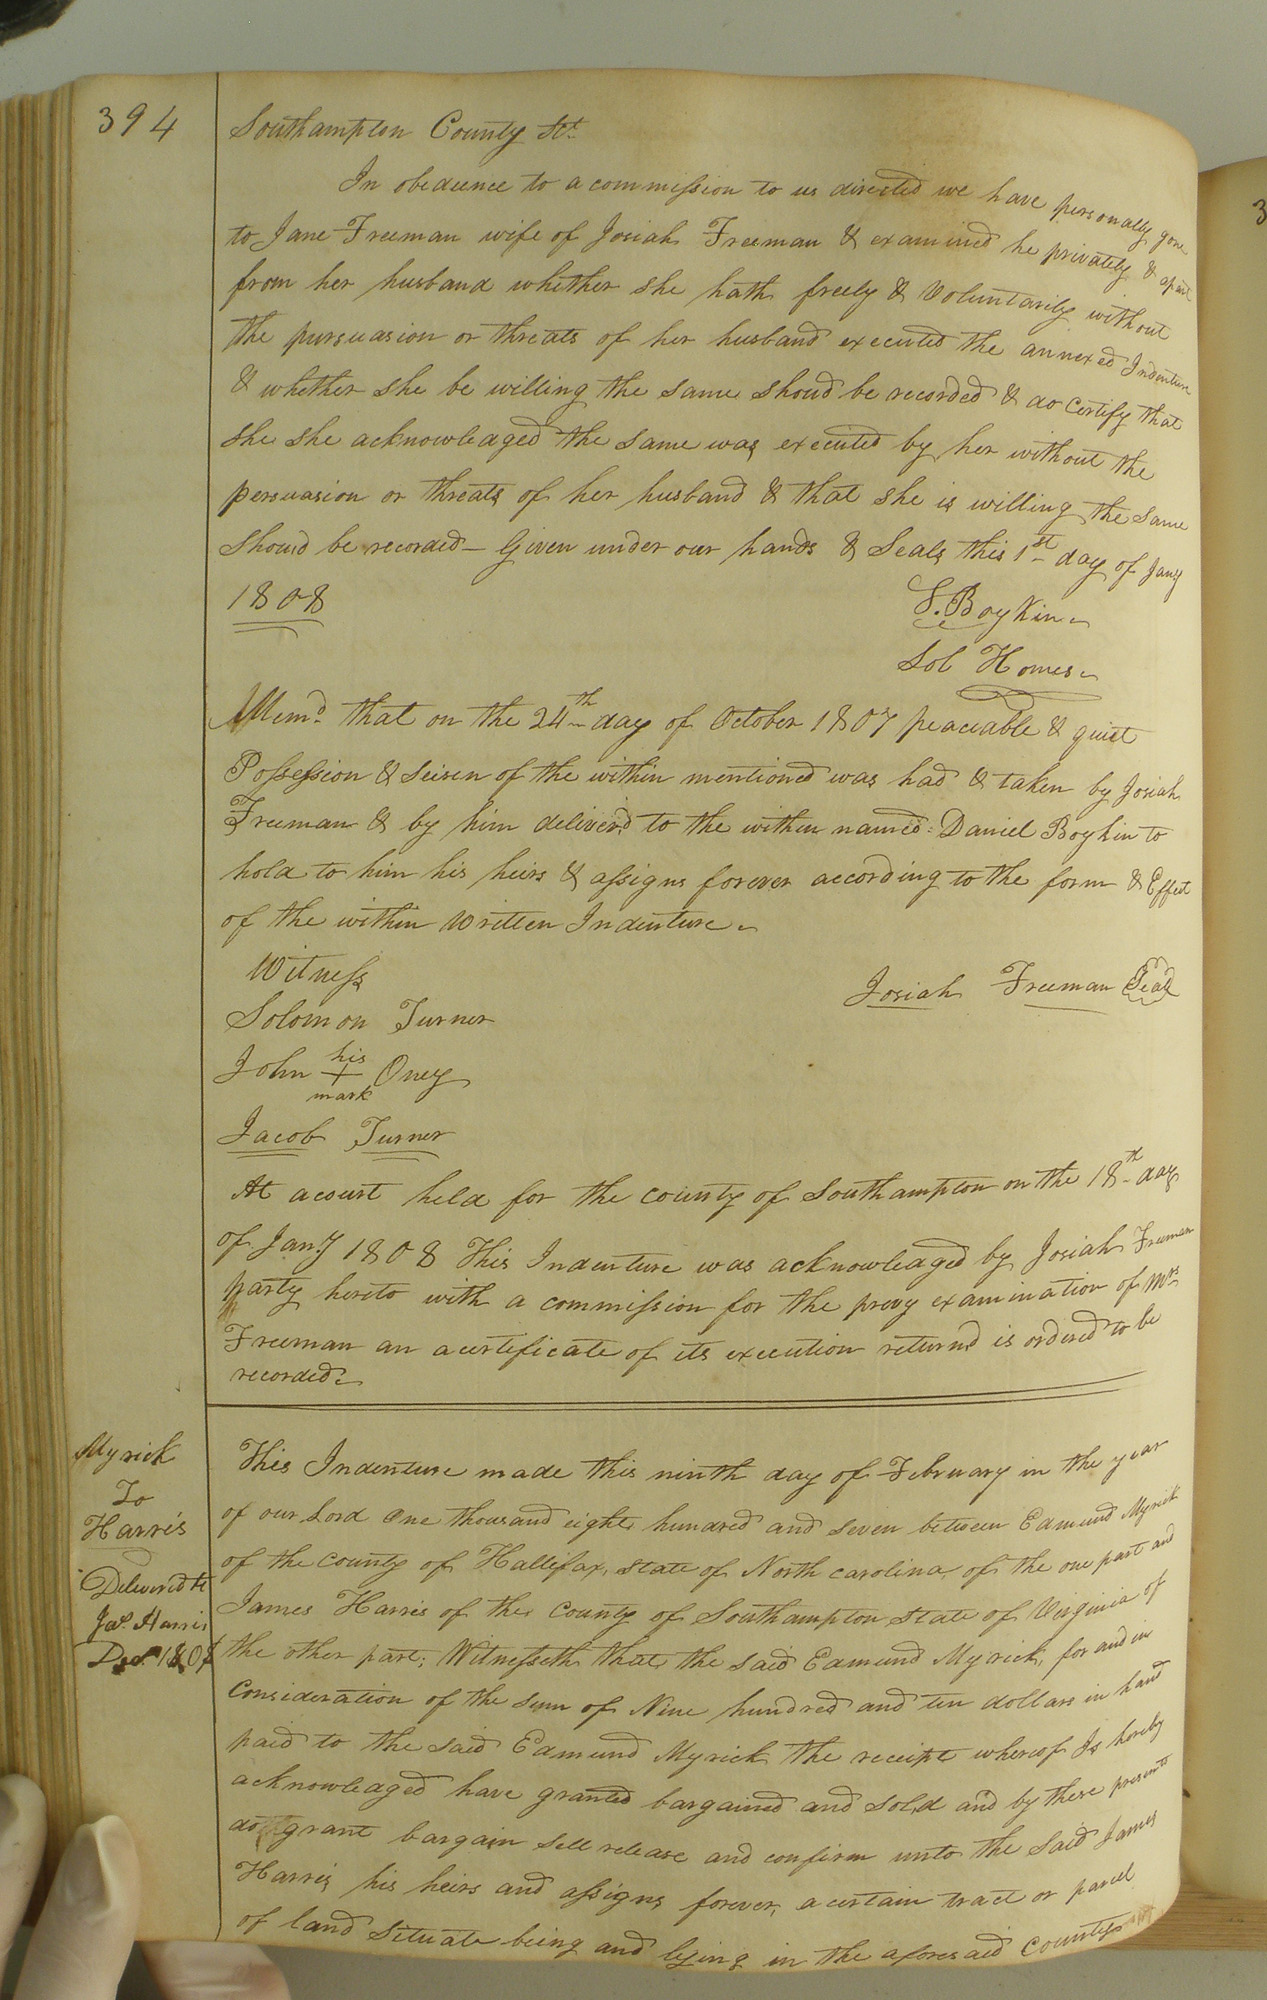 394
Southampton County Sct.
In obedience to a commission to us directed we have personally gone
to Jane Freeman wife of Josiah Freeman & examined he privately & apart
from her husband whether she hath freely & Voluntarily without
the pursuasion or threats of her husband executed the annexed Indenture
& whether she be willing the same shoud be recorded & do Certify that
she she acknowledged the same was executed by her without the
persuasion or threats of her husband & that she is willing the same
shoud be recorded — Given under our hands & Seals this 1st day of Jany
1808
S. Boykin
Sol Homes
Memd. that on the 24th day of October 1807 peaceable & quiet
Possession & seisen of the within mentioned was had & taken by Josiah
Freeman & by him deliverd to the within named Daniel Boykin to
hold to him his heirs & assigns forever according to the form & Effect
of the within Written Indenture
Witness
Josiah Freeman Seal
Solomon Turner
John his + mark Oney
Jacob Turner
At a court held for the county of Southampton on the 18th day
of Jany 1808 This Indenture was acknowledged by Josiah Freeman
party hereto with a commission for the prevy examination of Mrs
Freeman an a certificate of its execution returnd is ordered to be
recorded
Myrick
To
Harris
Deliverd to
Jas. Harris
Decr. 1808
This Indenture made this ninth day of February in the year
of our Lord One thousand eight hundred and seven between Edmund Myrick
of the County of Hallifax, state of North carolina of the one part and
James Harris of the County of Southampton state of Virginia of
the other part; Witnesseth that the said Edmund Myrick, for and in
Consideration of the sum of Nine hundred and ten dollars in hand
paid to the said Edmund Myrick the receipt whereof Is hereby
acknowledged have granted bargained and sold and by these presents
do grant bargain sell release and confirm unto the said James
Harris his heirs and assigns forever, a certain tract or parcel
of land situate being and lying in the aforesaid County